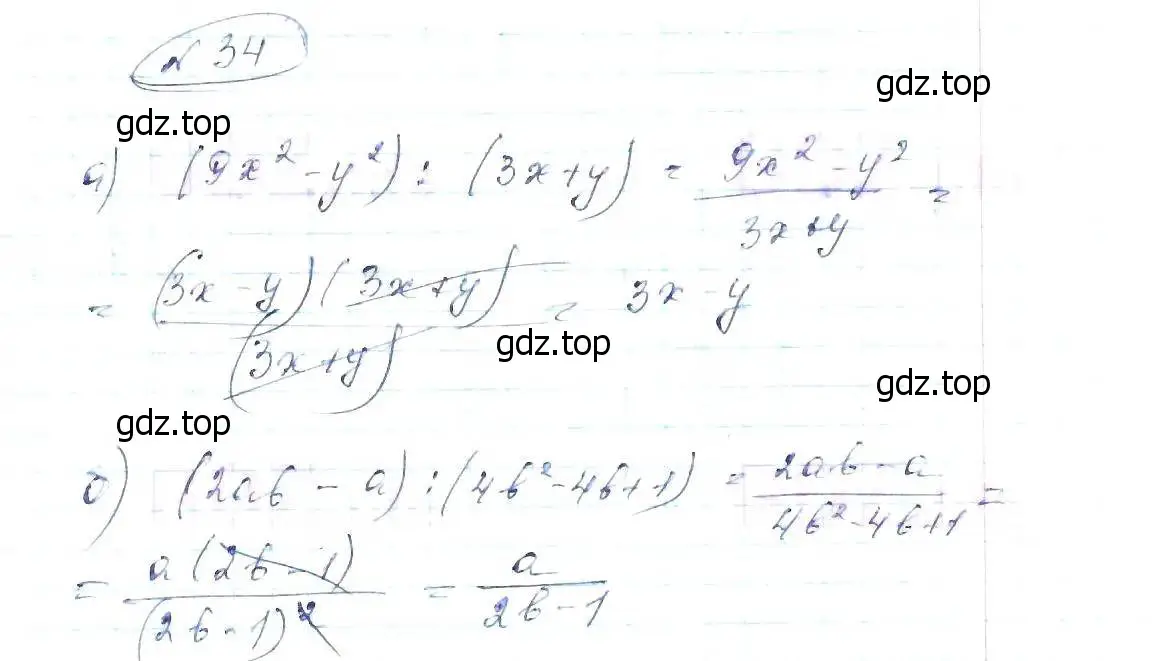 № 34
gdz.top
gdz.top
а) (9x² - y²) : (3x + y) = (9x² - y²)/(3x + y) =
= (3x - y)(3x + y)/(3x + y) = 3x - y
gdz.top
gdz.top
gdz.top
б) (2ab - a) : (4b² - 4b + 1) = (2ab - a)/(4b² - 4b + 1) =
= a(2b - 1)/(2b - 1)² = a/(2b - 1)